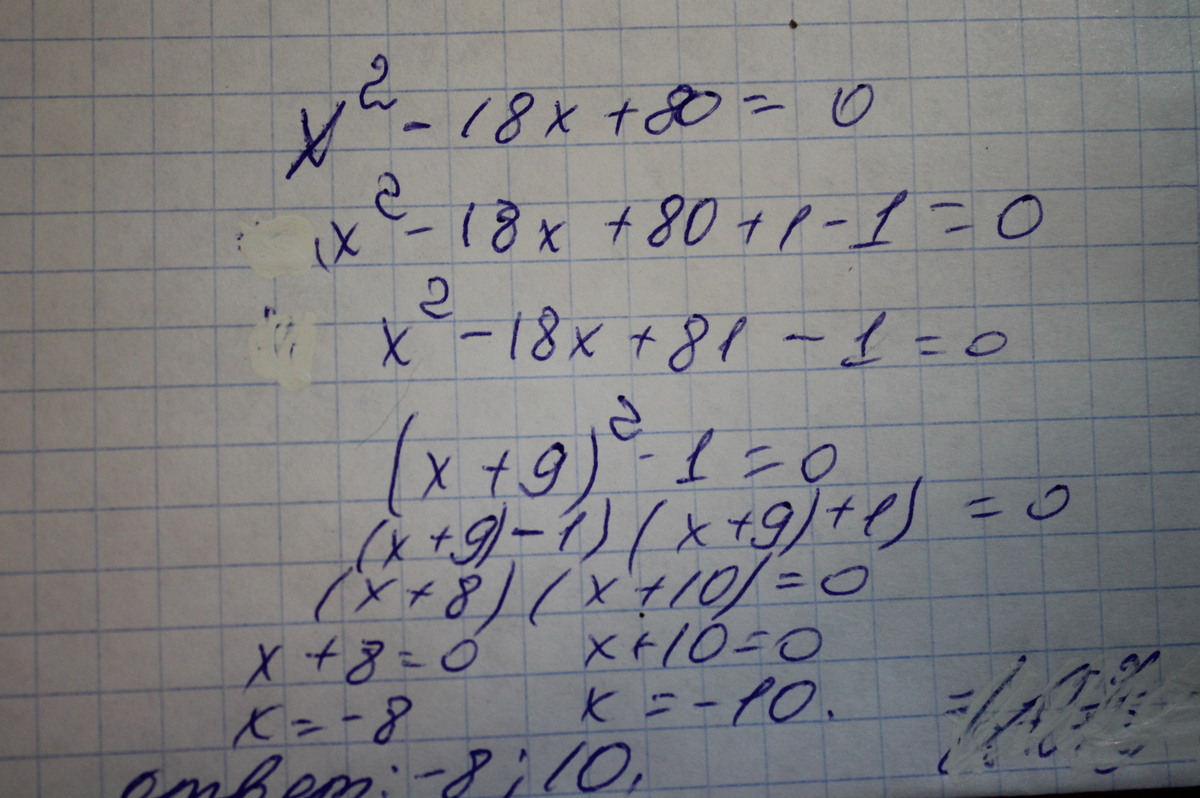 x² - 18x + 80 = 0
x² - 18x + 80 + 1 - 1 = 0
x² - 18x + 81 - 1 = 0
(x + 9)² - 1 = 0
(x + 9) - 1) (x + 9) + 1) = 0
(x + 8) (x + 10) = 0
x + 8 = 0 x + 10 = 0
x = -8 x = -10.
ответ: -8; 10.